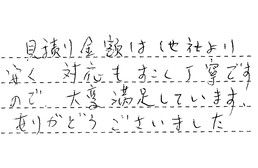 見積り金額は他社より
安く 対応もすごく丁寧です
ので、大変満足しています。
ありがとうございました